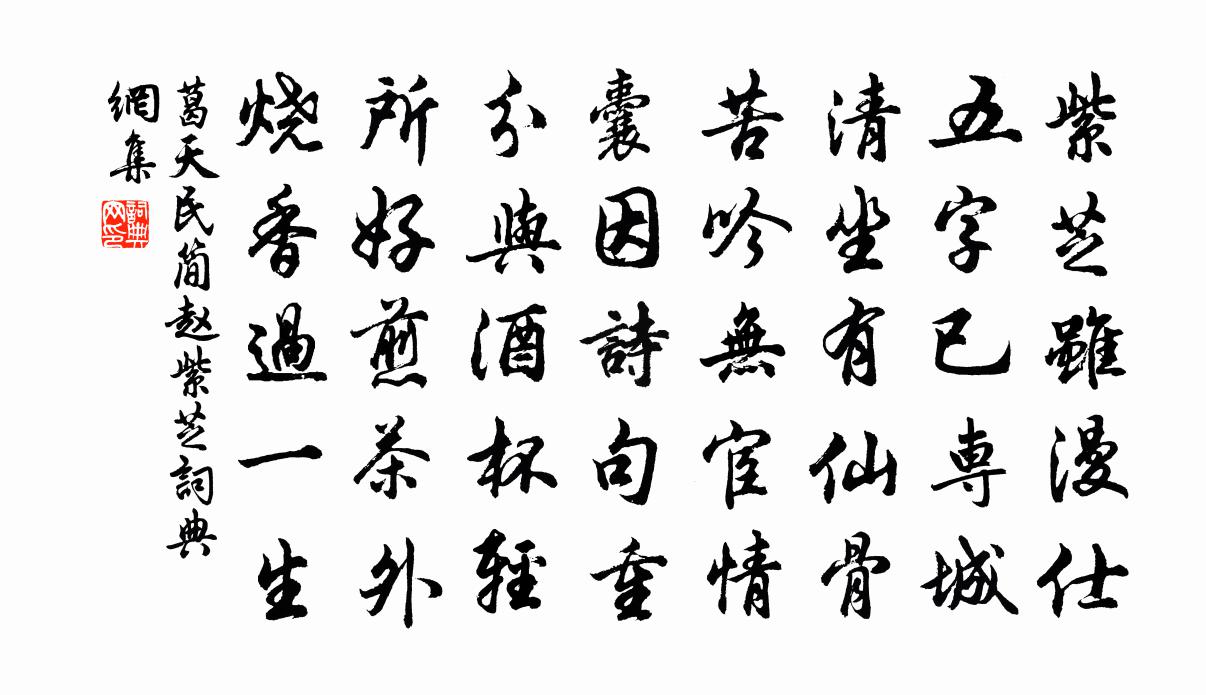 紫芝雖漫仕
五字已專城
清坐有仙骨
苦吟無宦情
囊因詩句重
分與酒杯輕
所好煎茶外
燒香過一生
葛天民简赵紫芝詞典
網集
詞典网